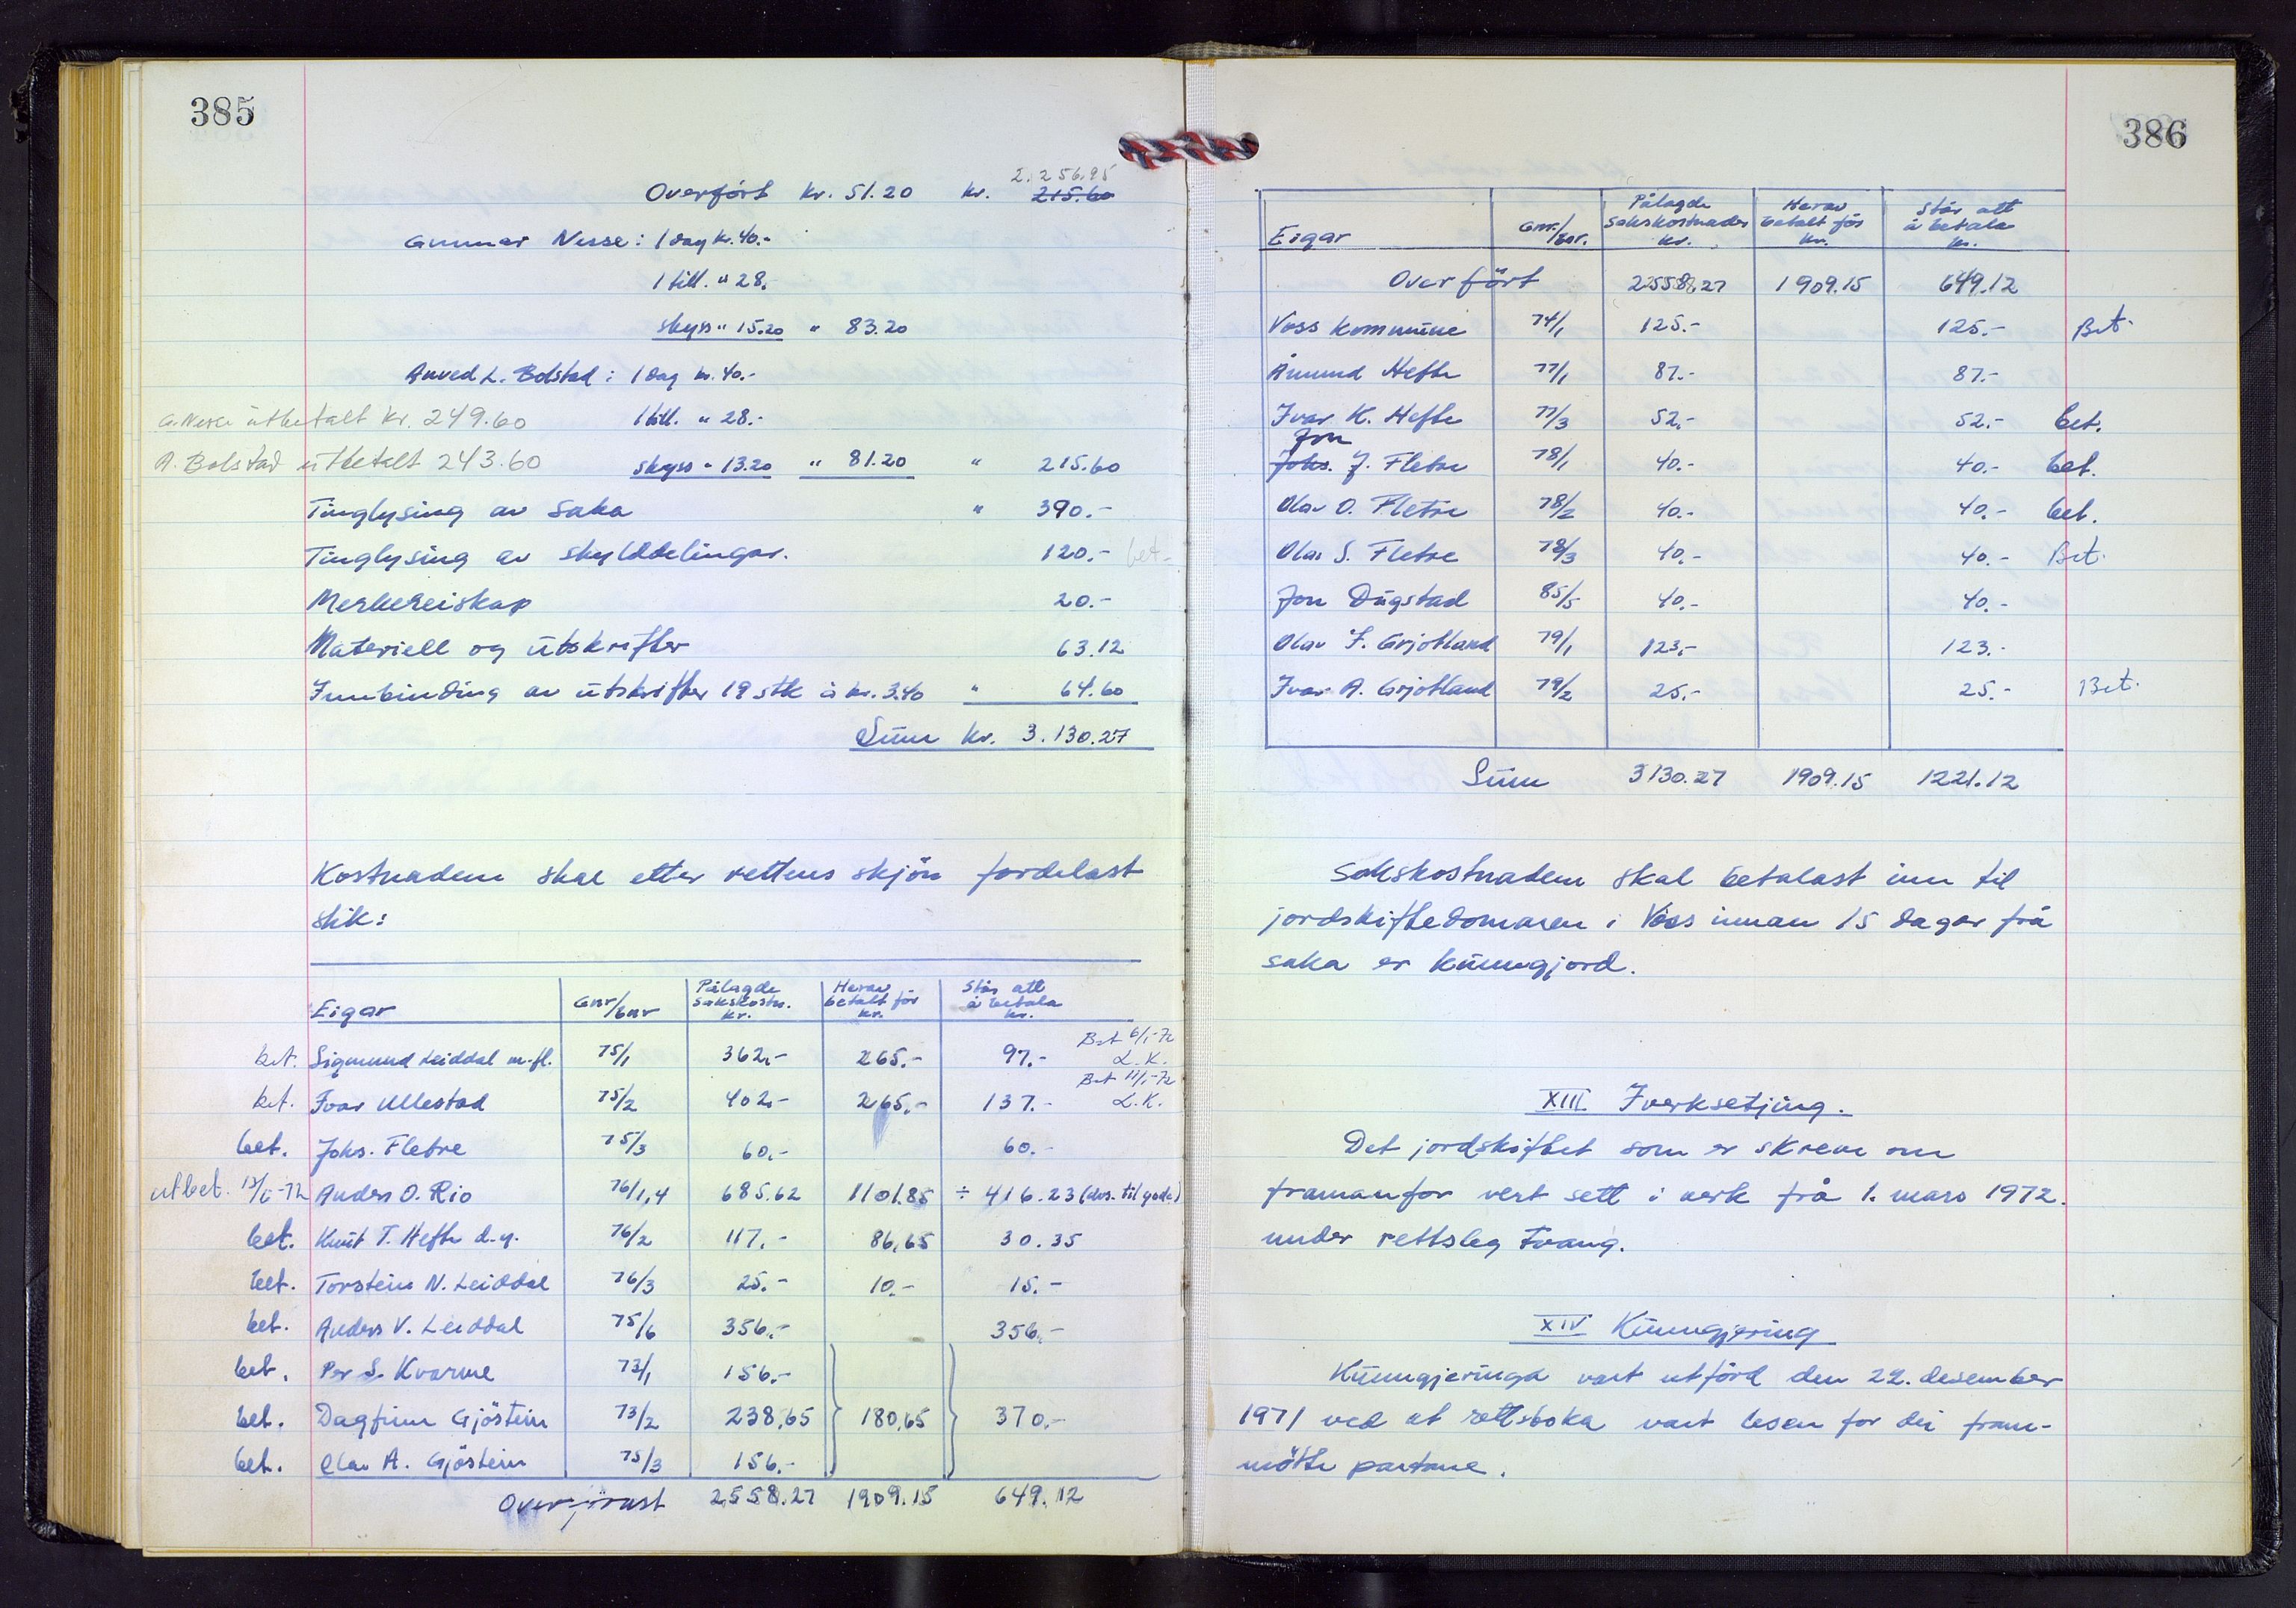 385
2.256.95
Overført kr. 51.20 kr. 215.60
Gunnar Nesse: 1 dag kr. 40.-
1 till. " 28.
skyss " 15.20 " 83.20
Anved L. Bolstad: 1 dag kr. 40.-
G. Nesse utbetalt kr. 249.60 1 till. " 28.-
A. Bolstad utbetalt 243.60 skyss " 13.20 " 81.20 " 215.60
Tinglysing av saka " 390.-
Tinglysing av skylddelingar. 120.- bet.
Merkereiskap 20.-
Materiell og utskrifter 63.12
Innbinding av utskrifter 19 stk à kr. 3.40 " 64.60
Sum kr. 3.130.27
Kostnadene skal etter rettens skjön fordelast
slik:
Eigar Gnr/bnr Pålagde sakskostn. kr. Herav betalt før kr. Står att å betala kr.
bet. Sigmund Leiddal m.fl. 75/1 362.- 265.- 97.- Bet 6/1-72 L.K.
bet. Ivar Ullestad 75/2 402.- 265.- 137.- Bet 11/1-72 L.K.
bet. Johs. Fletre 75/3 60.- 60.-
utbet. 13/6-72 Anders O. Rio 76/1,4 685.62 1101.85 ÷ 416.23 (dvs. til gode)
bet. Knut T. Hefte d.y. 76/2 117.- 86.65 30.35
bet. Torstein N. Leiddal 76/3 25.- 10.- 15.-
bet. Anders V. Leiddal 75/6 356.- 356.-
bet. Per S. Kvarme 73/1 156.-
bet. Dagfinn Gjöstein 73/2 238.65 180.65 370.-
bet. Olav A. Gjöstein 75/3 156.-
Overförast 2558.27 1909.15 649.12
386
Eigar Gnr./bnr. Pålagde sakskostnader kr. Herav betalt för kr. Står att å betala kr.
Overfört 2558.27 1909.15 649.12
Voss kommune 74/1 125.- 125.- Bet.
Åmund Hefte 77/1 87.- 87.-
Ivar K. Hefte 77/3 52.- 52.- bet.
Jon
Johs. J. Fletre 78/1 40.- 40.- bet.
Olav O. Fletre 78/2 40.- 40.- bet.
Olav S. Fletre 78/3 40.- 40.- Bet.
Jon Dugstad 85/5 40.- 40.-
Olav I. Grjotland 79/1 123.- 123.-
Ivar A. Grjotland 79/2 25.- 25.- Bet.
Sum 3130.27 1909.15 1221.12
Sakskostnadene skal betalast inn til
jordskiftedomaren i Voss innan 15 dagar frå
saka er kunngjord.
XIII Iverksetjing.
Det jordskiftet som er skreve om
framanfor vert sett i verk frå 1. mars 1972.
under rettsleg tvang.
XIV Kunngjering
Kunngjeringa vart utförd den 22. desember
1971 ved at rettsboka vart lesen for dei fram-
mötte partane.